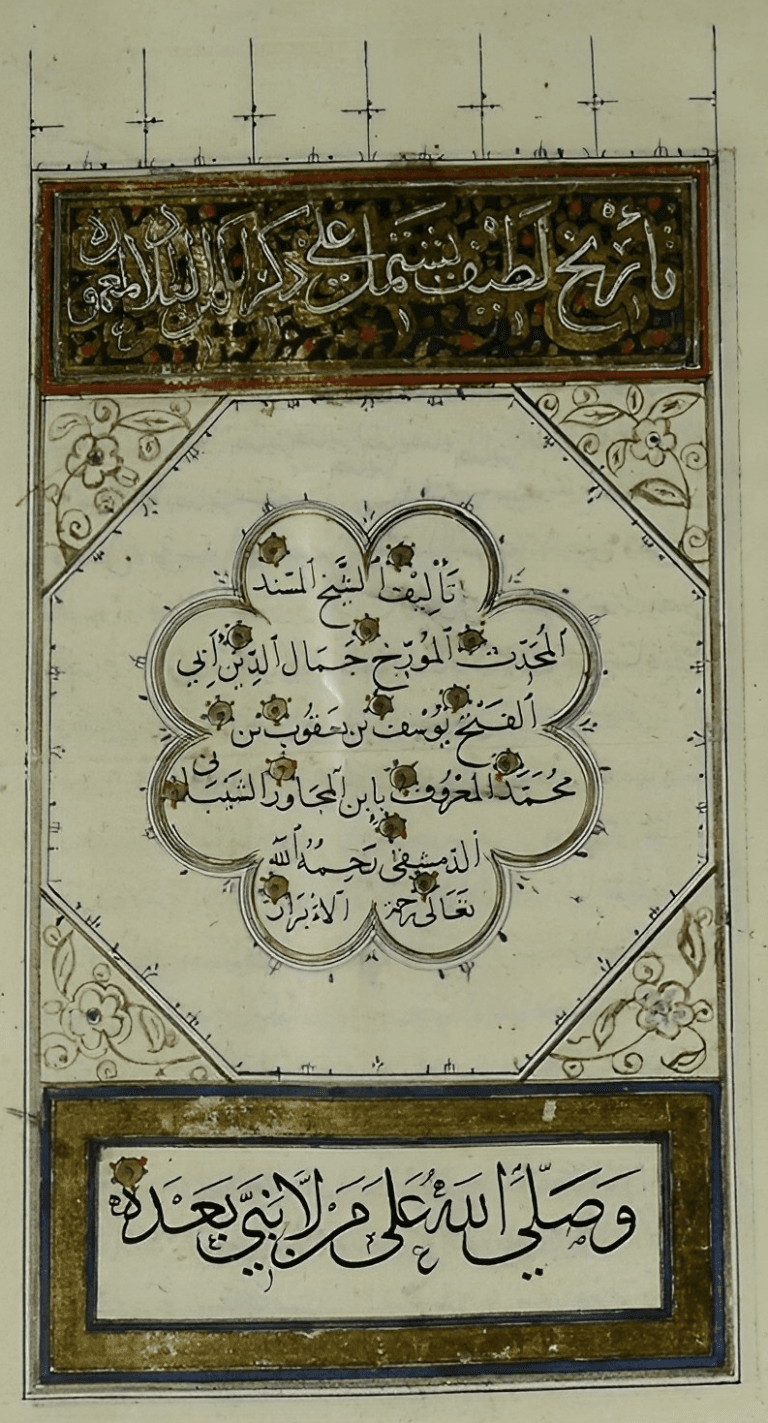 تأريخ لطيف يشتمل على ذكر البلاد المعمورة
تَأْلِيف الشَّيخ المسند
المُحَدِّث المؤرّخ جَمَال الدِّين أبي
الفَتْح يُوسُف بن يعقُوب بن
مُحَمَّد المَعْرُوف بابن المجَاور الشيبَاني
الدّمشقي رَحِمَهُ الله
تعَالى رحمة الأبرَار
وَصَلَّى اللهُ عَلَى مَنْ لَّا نَبِيَّ بَعْدَهُ